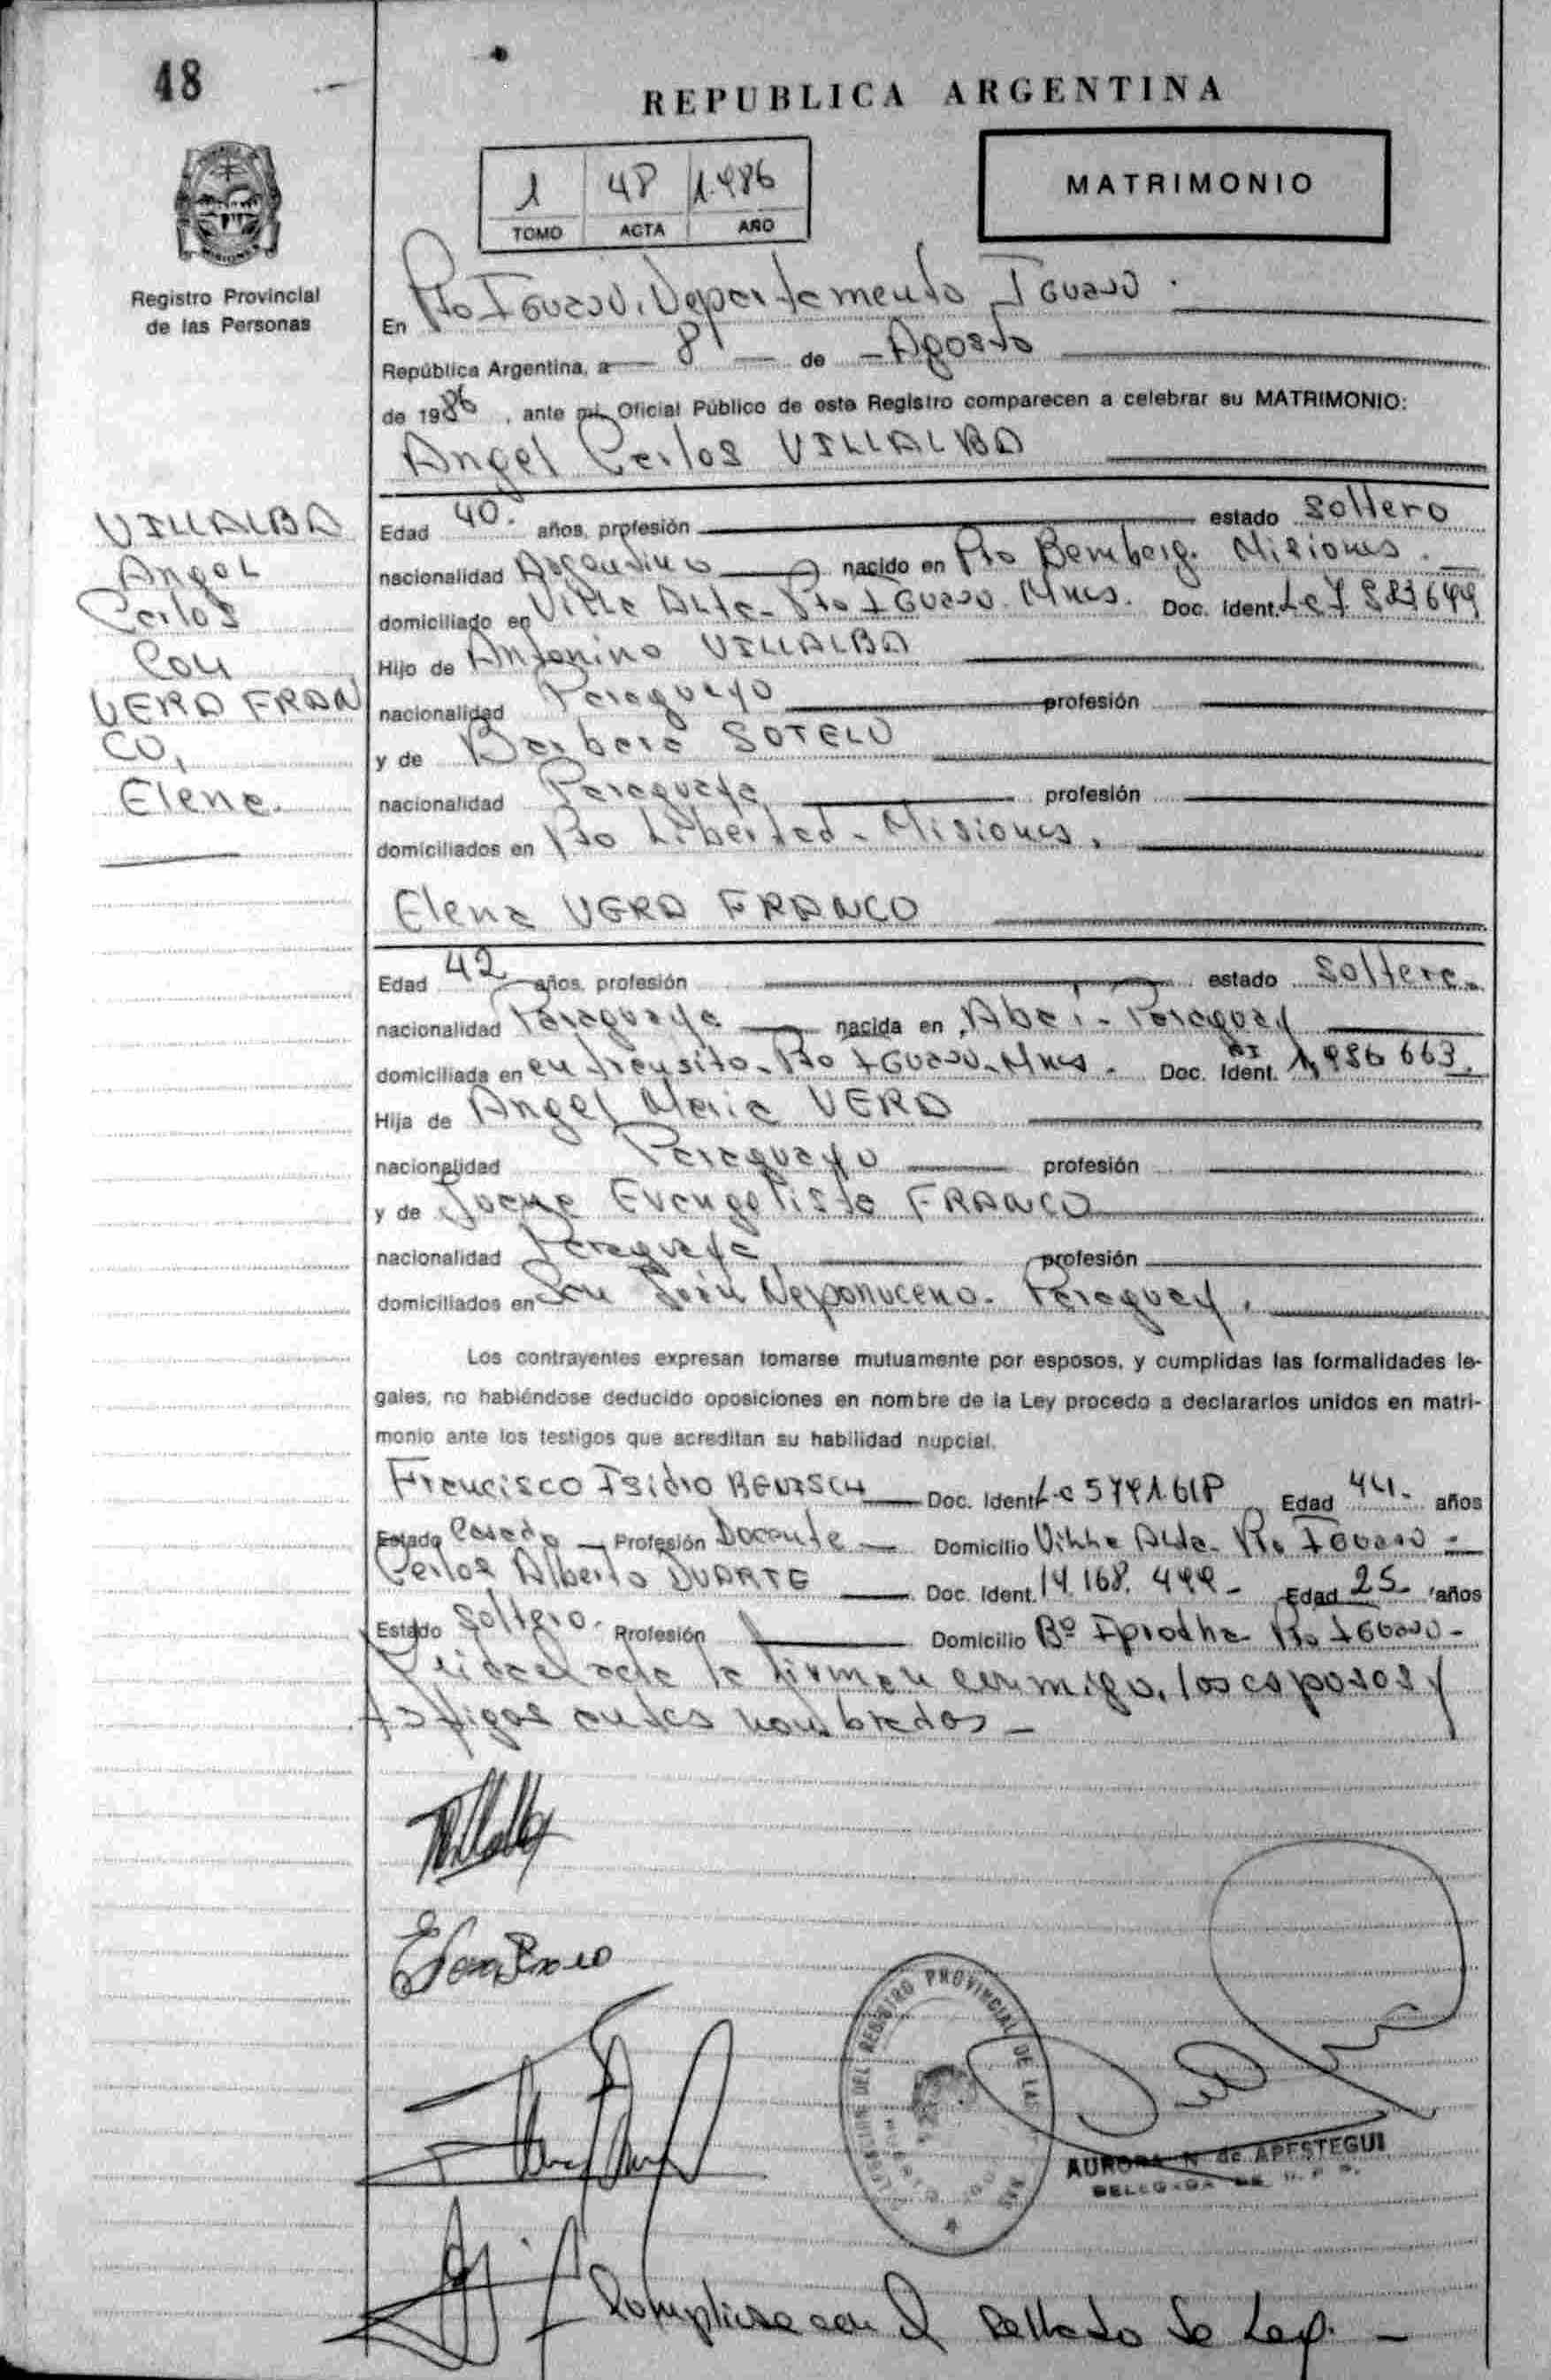 48
REPUBLICA ARGENTINA
1 48 1.986
TOMO ACTA AÑO
MATRIMONIO
MISIONES
Registro Provincial
de las Personas
En Pto Iguazú, Departamento Iguazú.
República Argentina, a 8 de Agosto
de 1986, ante mi, Oficial Público de este Registro comparecen a celebrar su MATRIMONIO:
Angel Carlos VILLALBA
VILLALBA
Angel
Carlos
Con
VERA FRAN
CO,
Elena.
Edad 40. años, profesión estado soltero
nacionalidad Argentino nacido en Pto Bemberg. Misiones.
domiciliado en Villa Alta - Pto Iguazú. Mnes. Doc. Ident.
Hijo de Antonino VILLALBA
nacionalidad Paraguayo profesión
y de Barbara SOTELO
nacionalidad Paraguaya profesión
domiciliados en Pto Libertad - Misiones.
Elena VERA FRANCO
Edad 42 años, profesión estado soltera.
nacionalidad Paraguaya nacida en Abaí - Paraguay
domiciliada en en transito - Pto Iguazú - Mnes. Doc. Ident. CI 1,986 663.
Hija de Angel Maria VERA
nacionalidad Paraguayo profesión
y de Juana Evangelista FRANCO
nacionalidad Paraguaya profesión
domiciliados en San Juan Neponuceno. Paraguay.
Los contrayentes expresan tomarse mutuamente por esposos, y cumplidas las formalidades le-
gales, no habiéndose deducido oposiciones en nombre de la Ley procedo a declararlos unidos en matri-
monio ante los testigos que acreditan su habilidad nupcial.
Francisco Isidro Doc. Ident. Edad 44. años
Estado Casado Profesión Docente Domicilio Villa Alta - Pto Iguazú -
Carlos Alberto DUARTE Doc. Ident. 14.168.499 - Edad 25 años
Estado Soltero. Profesión Domicilio Bº Pto Iguazú -
Leida el acta la firman conmigo, los esposos y
testigos antes nombrados -
REGISTRO PROVINCIAL DE LAS
AURORA N de APESTEGUI
Complicse con el sellado de Ley. -